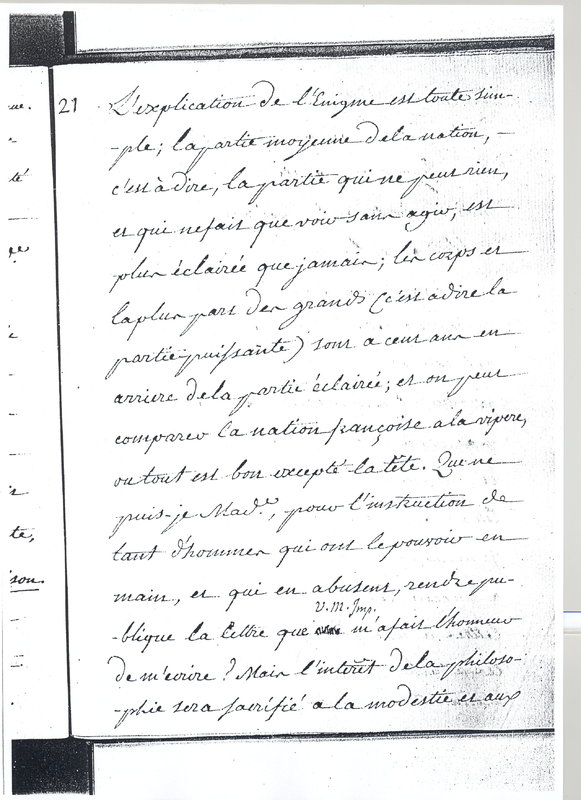 ue.
té
te,
son.
21
L'explication de l'Enigme est toute sim-
-ple; la partie moyenne de la nation, -
c'est à dire, la partie qui ne peut rien,
et qui ne fait que voir sans agir, est
plus éclairée que jamais; les corps et
la plus part des grands (c'est a dire la
partie puissante) sont à cent ans en
arriere de la partie éclairée; et on peut
comparer la nation françoise a la vipere,
ou tout est bon excepté la tête. Que ne
puis-je Made., pour l'instruction de
tant d'hommes qui ont le pouvoir en
main, et qui en abusent, rendre pu-
V. M. Imp.
-blique la Lettre que m'a fait l'honneur
de m'ecrire? Mais l'interêt de la philoso-
-phie sera sacrifié a la modestie et aux